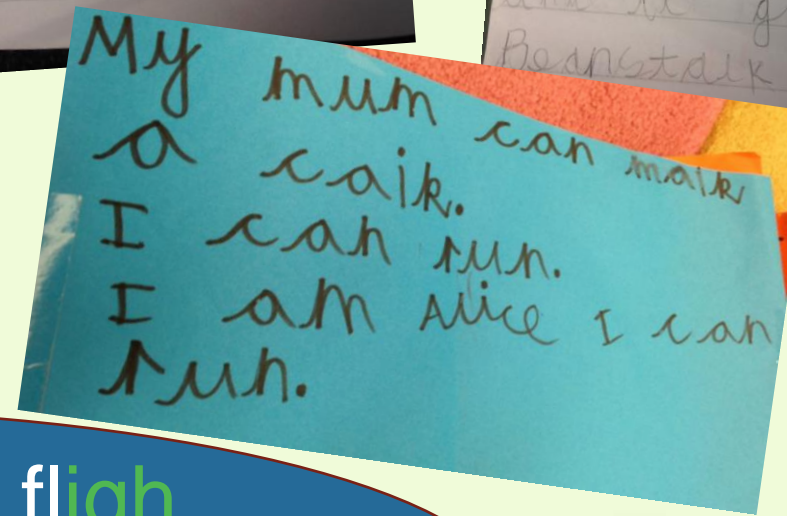 Beanstalk
My mum can maik
a caik.
I can run.
I am Alice I can
run.
fligh